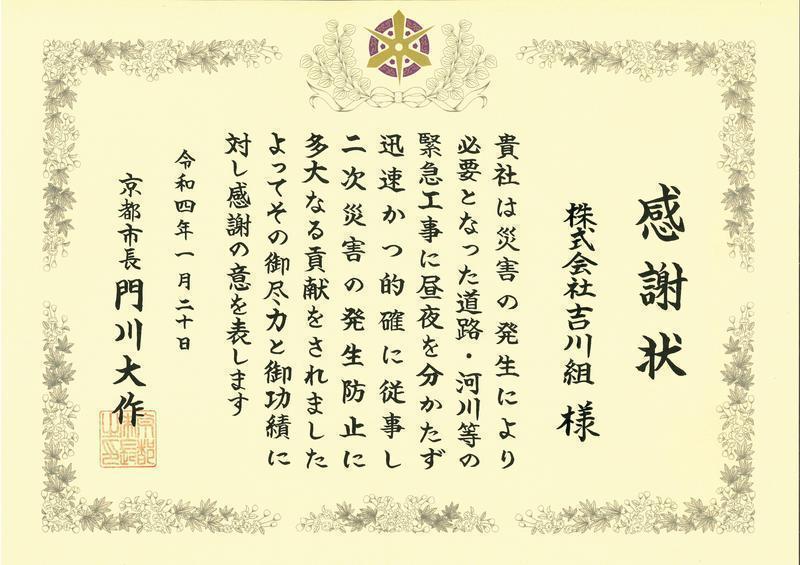 感謝状
株式会社吉川組 様
貴社は災害の発生により
必要となった道路・河川等の
緊急工事に昼夜を分かたず
迅速かつ的確に従事し
二次災害の発生防止に
多大なる貢献をされました
よってその御尽力と御功績に
対し感謝の意を表します
令和四年一月二十日
京都市長 門川大作